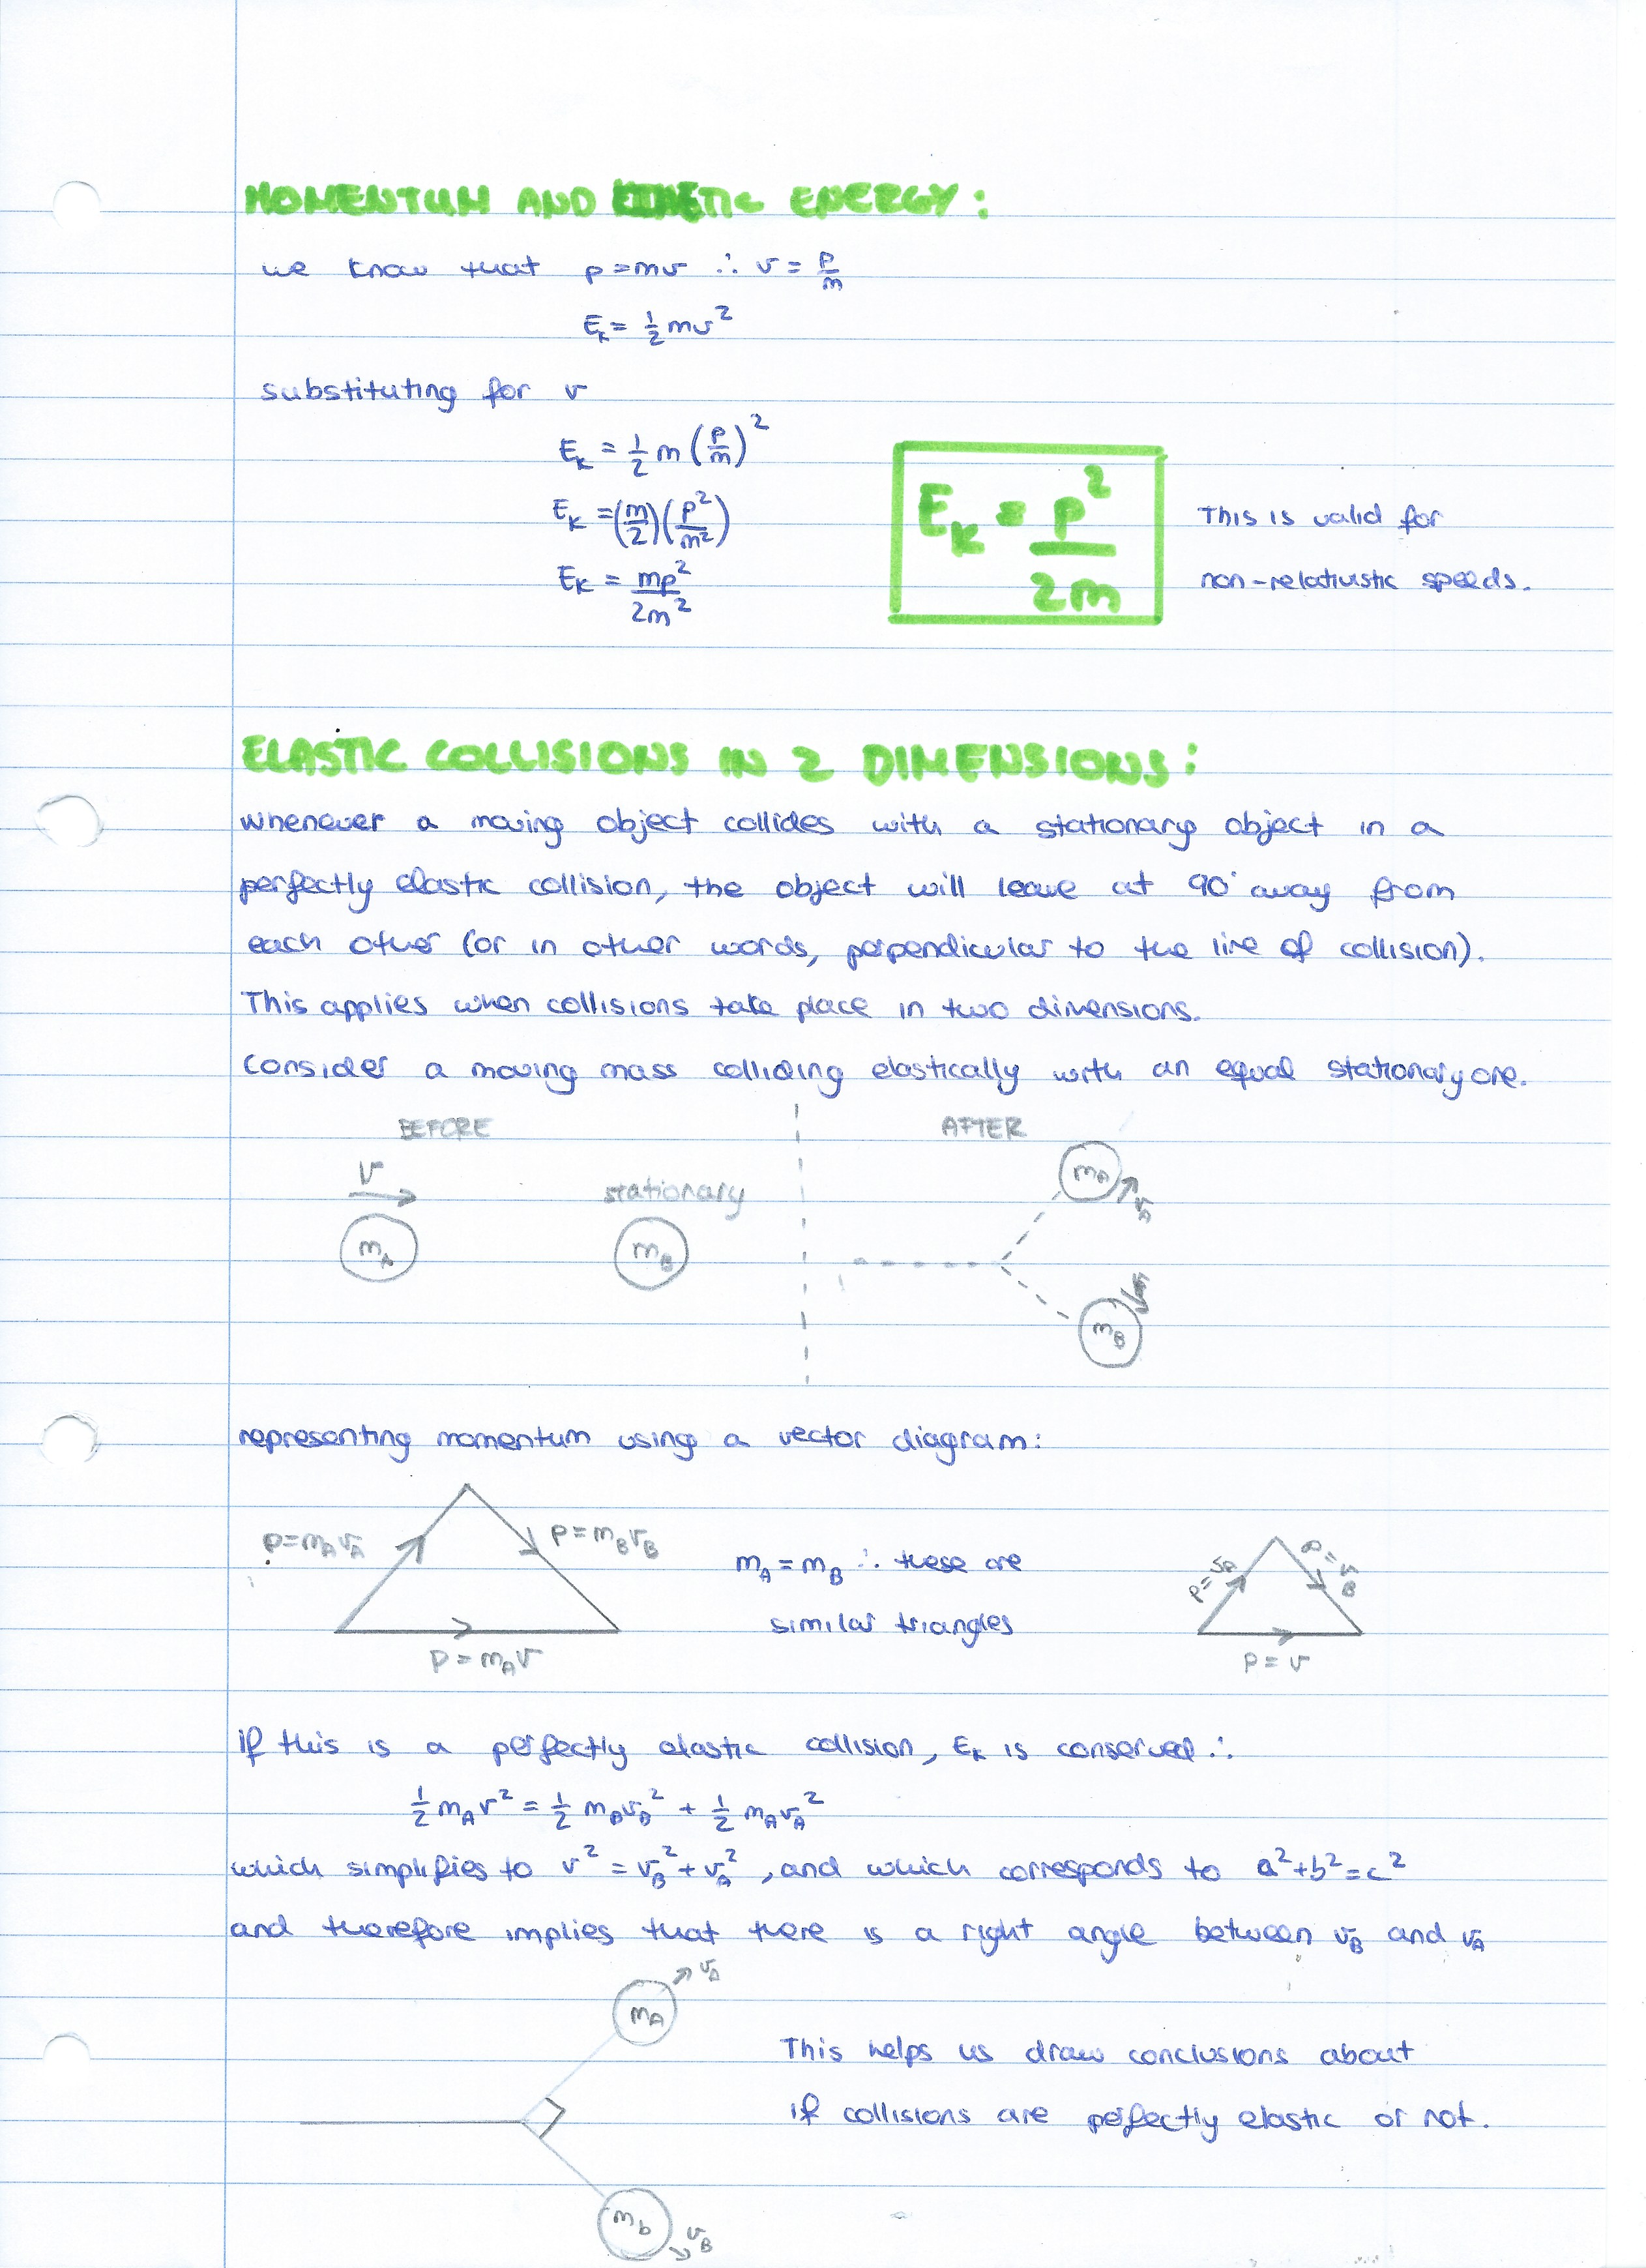 MOMENTUM AND KINETIC ENERGY:
we know that p=mv ∴ v = p/m
E_k = 1/2 mv²
substituting for v
E_k = 1/2 m (p/m)²
E_k = (m/2)(p²/m²)
E_k = mp²/2m²
E_k = p²/2m
This is valid for
non-relativistic speeds.
ELASTIC COLLISIONS IN 2 DIMENSIONS:
whenever a moving object collides with a stationary object in a
perfectly elastic collision, the object will leave at 90° away from
each other (or in other words, perpendicular to the line of collision).
This applies when collisions take place in two dimensions.
Consider a moving mass colliding elastically with an equal stationary one.
BEFORE
AFTER
v
stationary
m_A
m_B
m_A
v_A
m_B
v_B
representing momentum using a vector diagram:
p=m_A v_A
p=m_B v_B
p=m_A v
m_A = m_B ∴ these are
similar triangles
p=v_A
p=v_B
p=v
if this is a perfectly elastic collision, E_k is conserved ∴
1/2 m_A v² = 1/2 m_B v_B² + 1/2 m_A v_A²
which simplifies to v² = v_B² + v_A², and which corresponds to a²+b²=c²
and therefore implies that there is a right angle between v_B and v_A
m_A
v_A
This helps us draw conclusions about
if collisions are perfectly elastic or not.
m_b
v_B